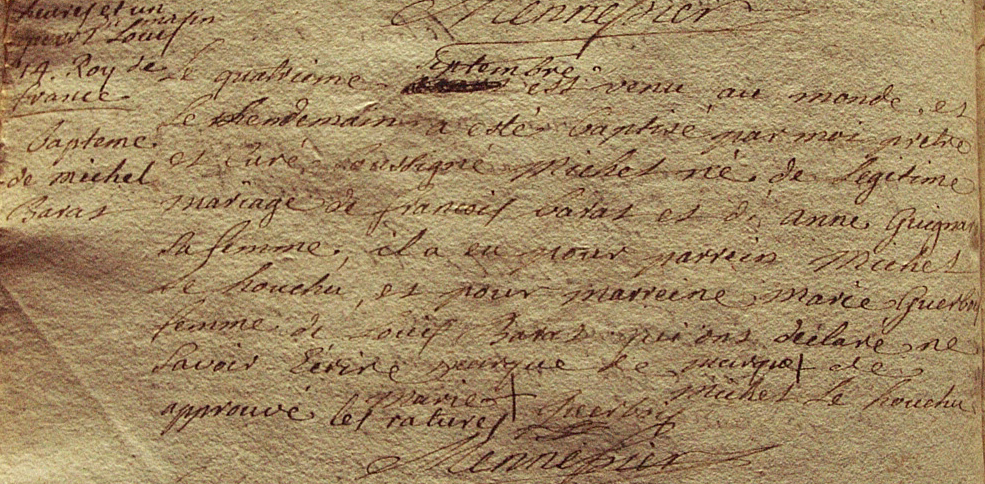 heures et un
quart Louis
14. Roy de
france
Bapteme
de michel
Baras
Hennepier
Le quatrieme septembre est venu au monde, et
le lhendemain a esté baptisé par moi prêtre
et Curé soussigné Michel né de legitime
mariage de françois baras et de anne Guignar
sa femme, il a eu pour parrein Michel
le houchu, et pour marreine Marie Guerbry
femme de Louis Baras qui ont déclaré ne
savoir Ecrire marque de marque + de
marie + Guerbry Michel le houchu
approuvé les ratures
Hennepier